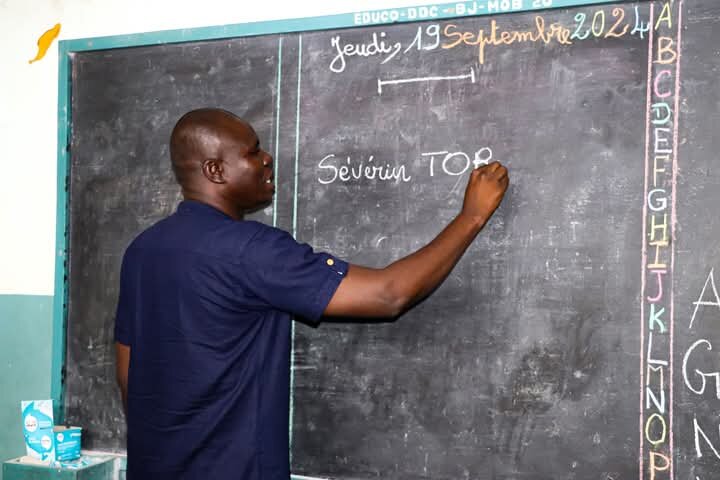 EDUCO-DDC-BJ-MOB 20
Jeudi, 19 Septembre 2024
Sévérin TOB
A
B
C
D
E
F
G
H
I
J
K
L
M
N
O
P
A
G
N